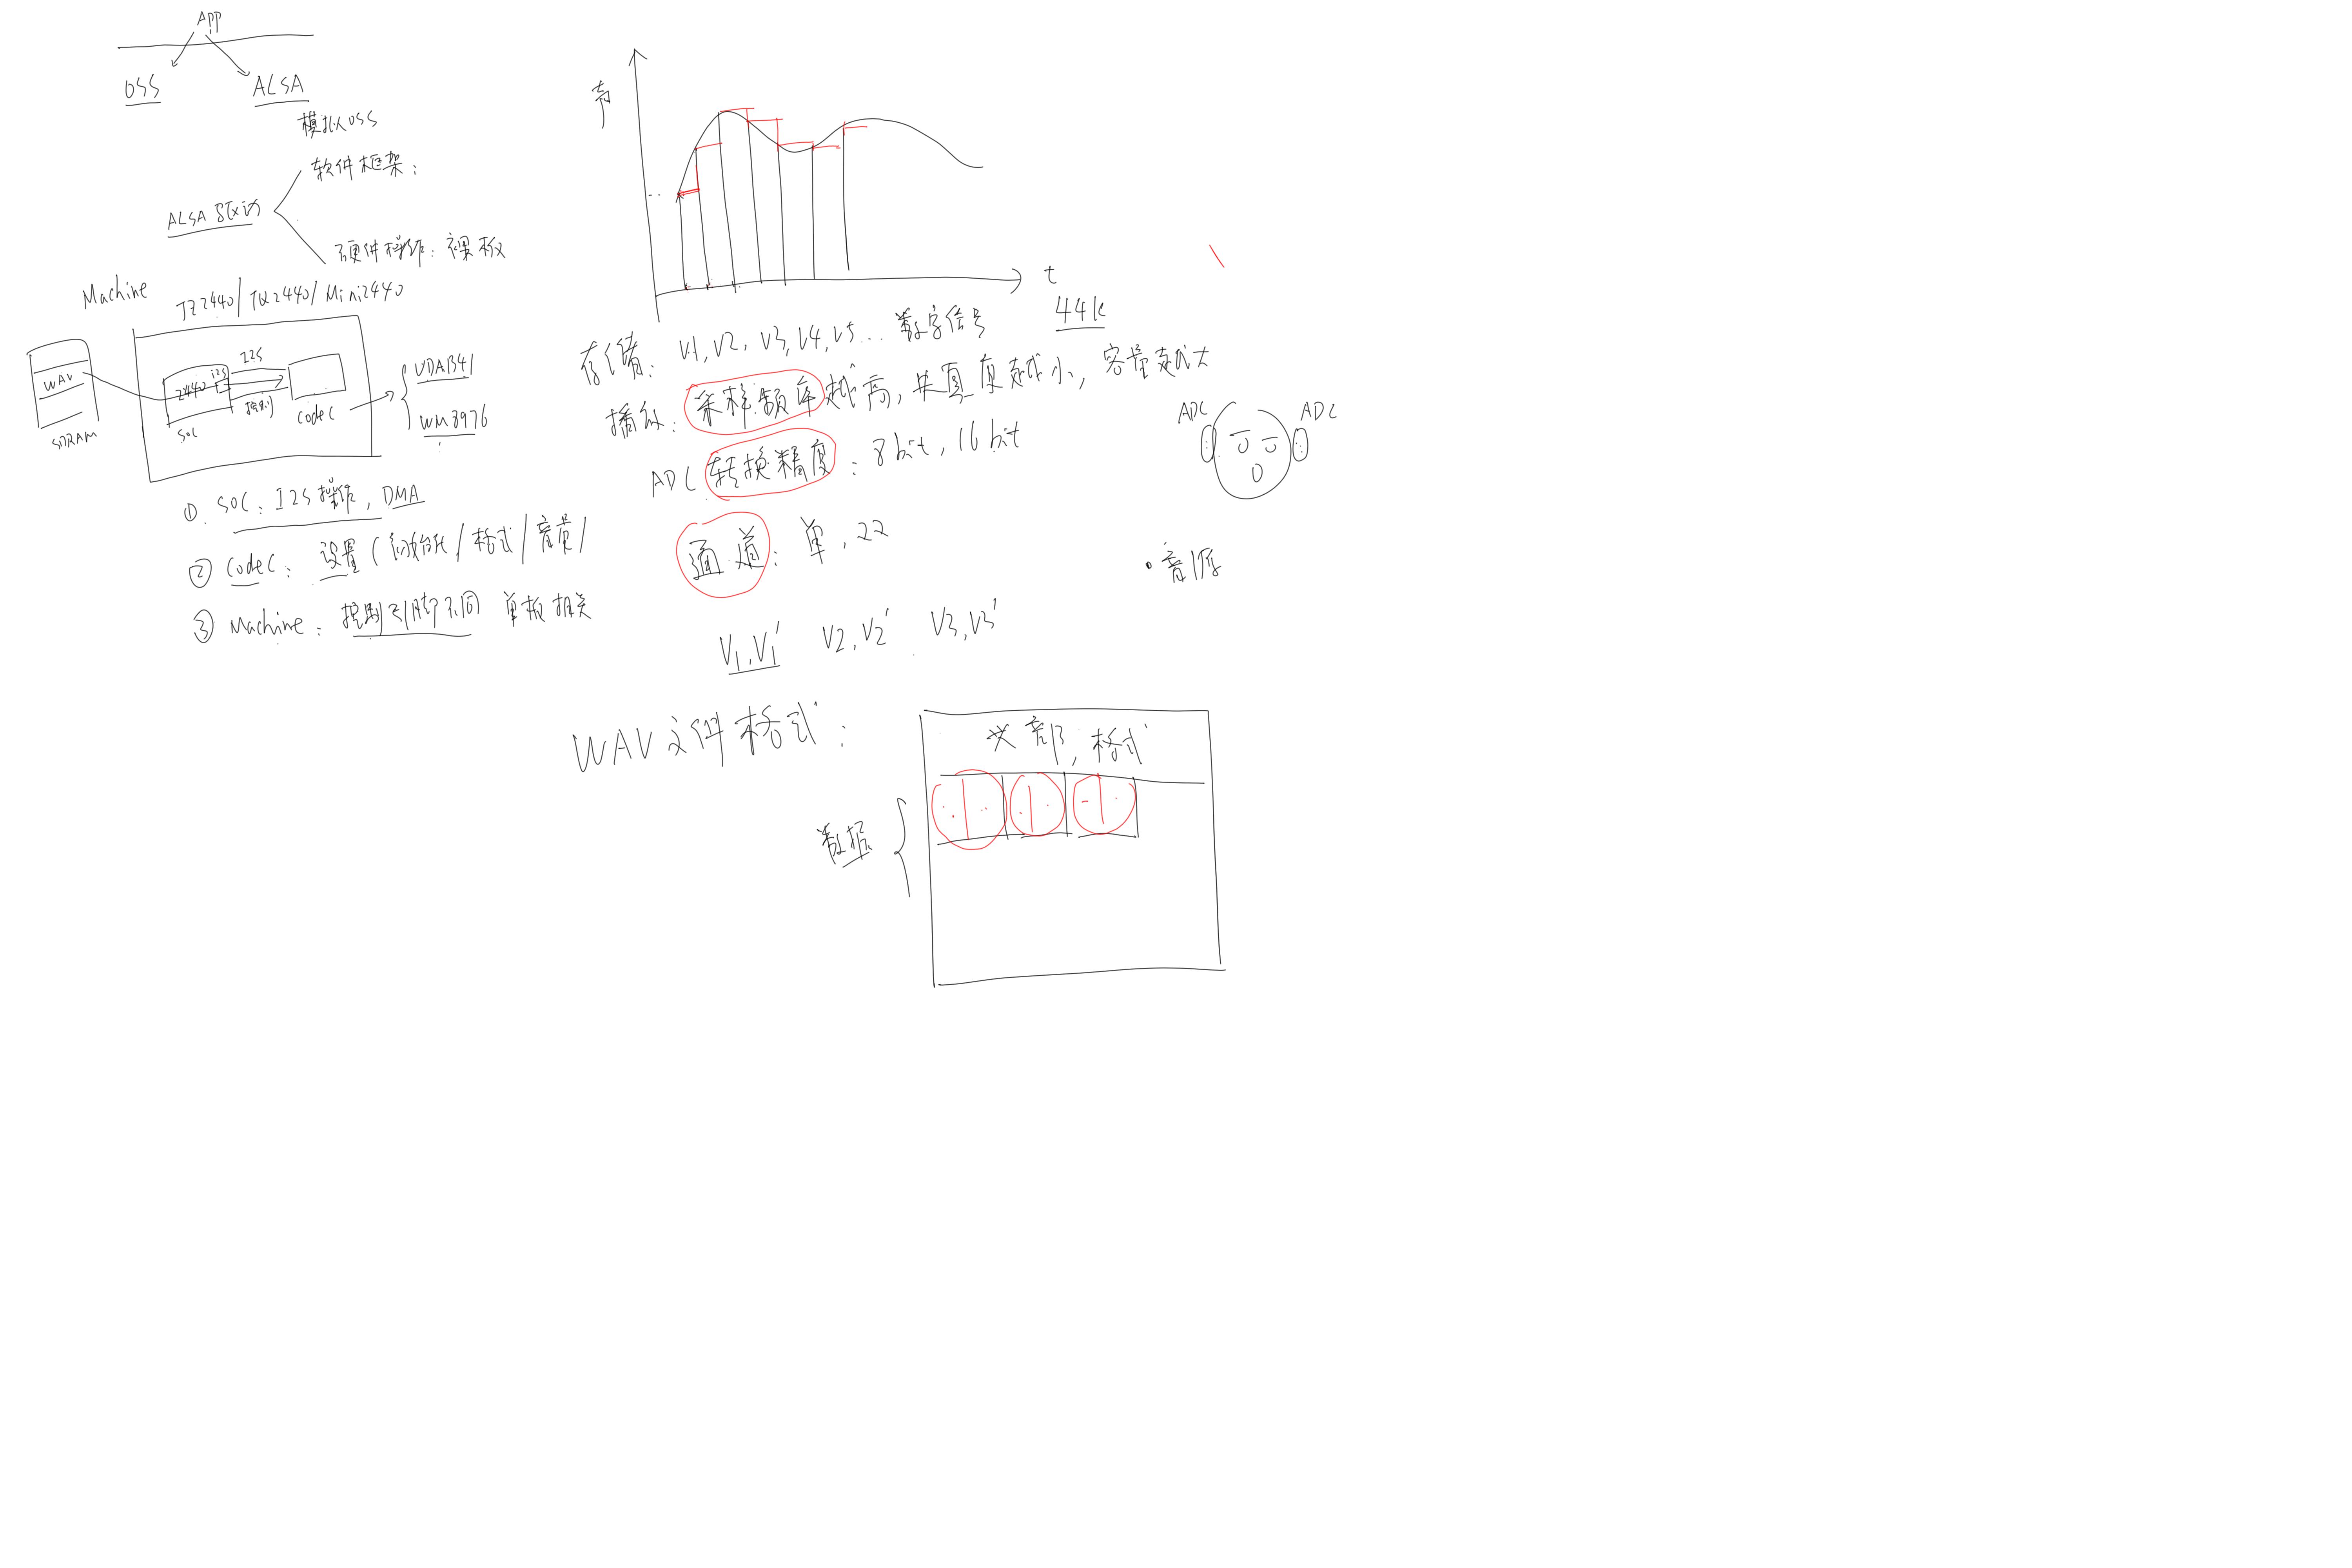 App
OSS
ALSA
模拟OSS
软件框架：
ALSA驱动
硬件操作：裸板
Machine
JZ2440/TQ2440/Mini2440
WAV
SDRAM
2440
i2s
SOC
I2S
控制
codec
UDA1341
WM8976
① SOC：I2S操作，DMA
② codec：设置(初始化/格式/音量)
③ Machine：控制引脚不同 单板相关
声
t
44k
存储：V1,V2,V3,V4,V5... 数字信号
播放：采样频率越高，失真度越小，容量越大
ADC转换精度：8bit，16bit
通道：单，
ADC
ADC
音源
V1,V1' V2,V2' V3,V3'
WAV文件格式：
头部，格式
数据